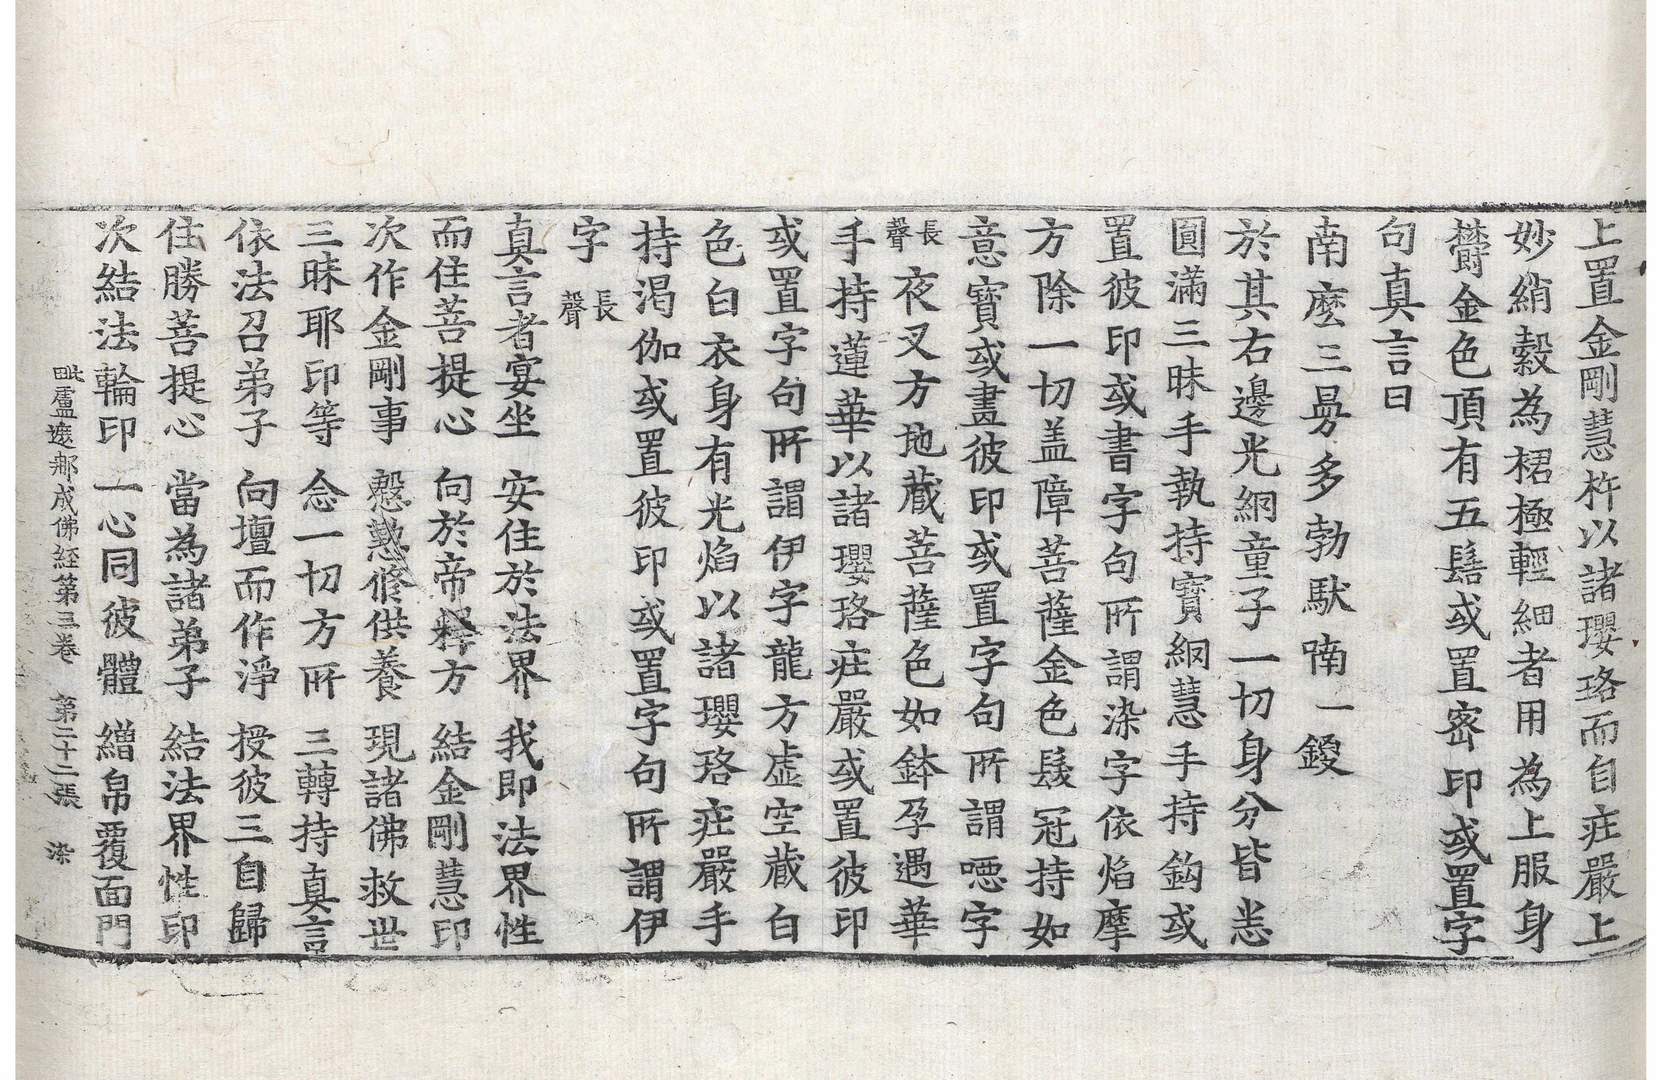 上置金剛慧杵以諸瓔珞而自疘嚴上
妙綃縠為裙極輕細者用為上服身
欝金色頂有五髻或置密印或置字
句真言曰
南麼三曼多勃馱喃一鑁
於其右邊光網童子一切身分皆悉
圓滿三昧手執持寶網慧手持鈎或
置彼印或書字句所謂染字依焰摩
方除一切盖障菩薩金色髮冠持如
意寶或畫彼印或置字句所謂噁字
長聲夜叉方地藏菩薩色如鉢孕遇華
手持蓮華以諸瓔珞疘嚴或置彼印
或置字句所謂伊字龍方虛空藏白
色白衣身有光焰以諸瓔珞疘嚴手
持渴伽或置彼印或置字句所謂伊
字長聲
真言者宴坐　安住於法界　我即法界性
而住菩提心　向於帝釋方　結金剛慧印
次作金剛事　慇懃修供養　現諸佛救世
三昧耶印等　念一切方所　三轉持真言
依法召弟子　向壇而作淨　授彼三自歸
住勝菩提心　當為諸弟子　結法界性印
次結法輪印　一心同彼體　繒帛覆面門
毗盧遮那成佛經第三卷　第二十二張　染